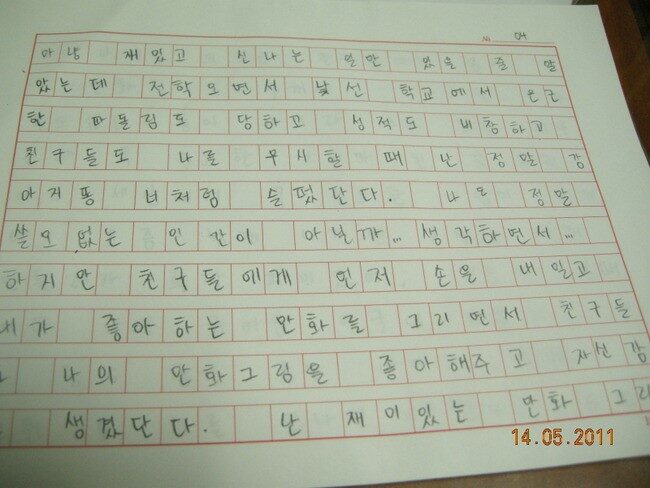 No. 04
마냥 재밌고 신나는 일만 있을 줄 알
았는데 전학오면서 낯선 학교에서 은근
한 따돌림도 당하고 성적도 비참하고
친구들도 나를 무시할때 난 정말 강
아지똥 너처럼 슬펐단다. 나도 정말
쓸모 없는 인간이 아닐까... 생각하면서...
하지만 친구들에게 먼저 손을 내밀고
내가 좋아하는 만화를 그리면서 친구들
나의 만화그림을 좋아해주고 자신감
생겼단다. 난 재미있는 만화 그리
14.05.2011